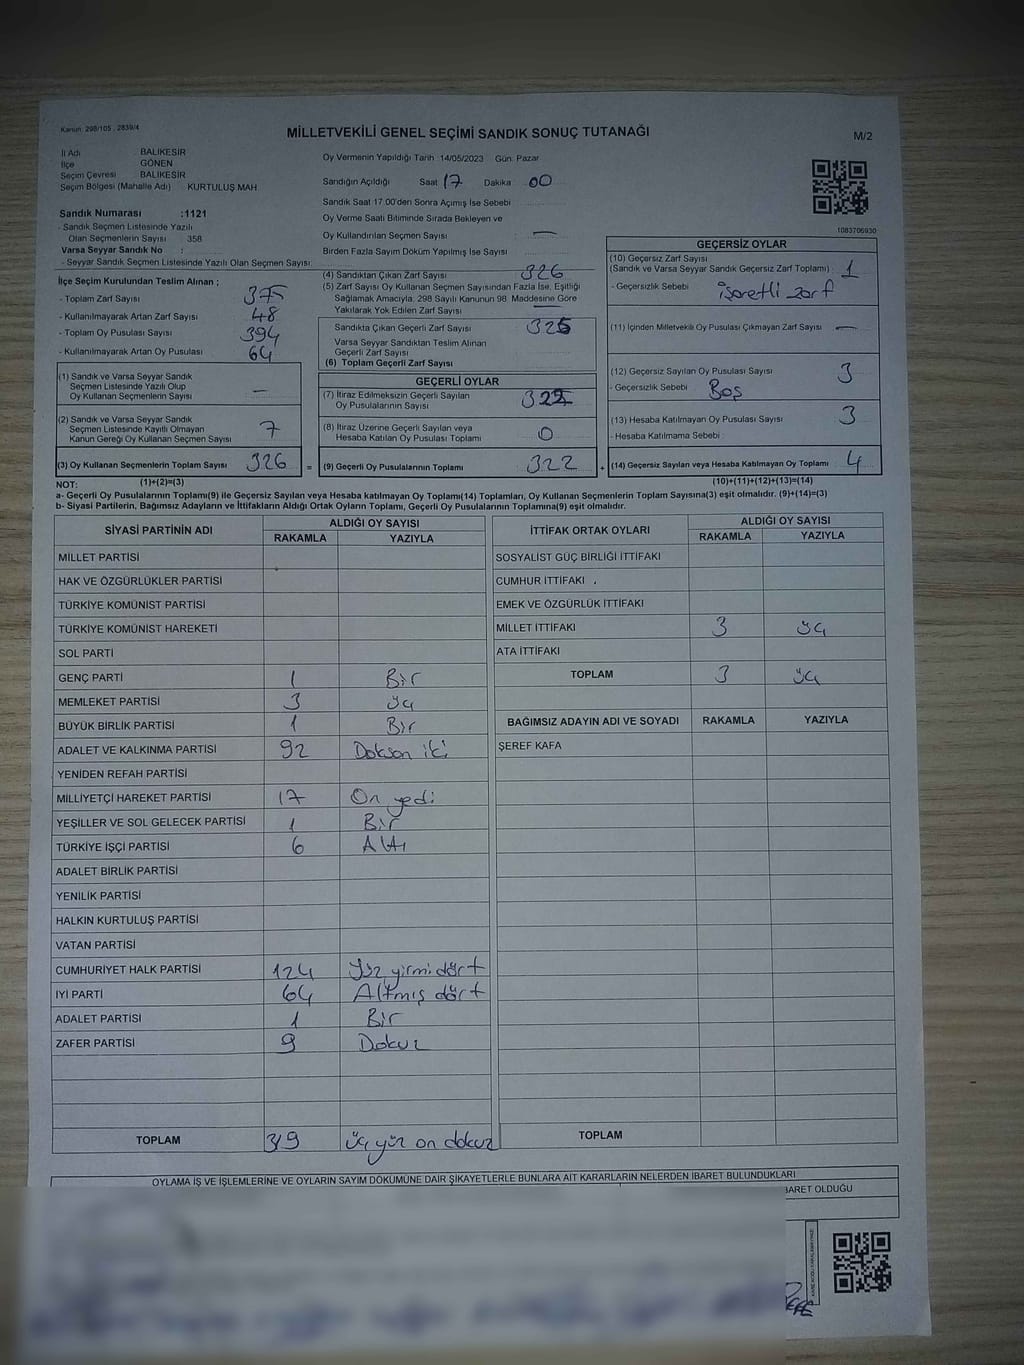 Kanun: 298/105 , 2839/4
MİLLETVEKİLİ GENEL SEÇİMİ SANDIK SONUÇ TUTANAĞI
M/2
İl Adı BALIKESİR
İlçe GÖNEN
Seçim Çevresi BALIKESİR
Seçim Bölgesi (Mahalle Adı) KURTULUŞ MAH
Sandık Numarası :1121
- Sandık Seçmen Listesinde Yazılı
Olan Seçmenlerin Sayısı 358
Varsa Seyyar Sandık No :
- Seyyar Sandık Seçmen Listesinde Yazılı Olan Seçmen Sayısı:
Oy Vermenin Yapıldığı Tarih :14/05/2023 Gün: Pazar
Sandığın Açıldığı Saat 17 Dakika 00
Sandık Saat 17.00'den Sonra Açılmış İse Sebebi
Oy Verme Saati Bitiminde Sırada Bekleyen ve
Oy Kullandırılan Seçmen Sayısı —
Birden Fazla Sayım Döküm Yapılmış İse Sayısı
1083706930
İlçe Seçim Kurulundan Teslim Alınan ;
- Toplam Zarf Sayısı 375
- Kullanılmayarak Artan Zarf Sayısı 48
- Toplam Oy Pusulası Sayısı 394
- Kullanılmayarak Artan Oy Pusulası 64
(1) Sandık ve Varsa Seyyar Sandık
Seçmen Listesinde Yazılı Olup
Oy Kullanan Seçmenlerin Sayısı —
(2) Sandık ve Varsa Seyyar Sandık
Seçmen Listesinde Kayıtlı Olmayan
Kanun Gereği Oy Kullanan Seçmen Sayısı 7
(3) Oy Kullanan Seçmenlerin Toplam Sayısı 326 =
(4) Sandıktan Çıkan Zarf Sayısı 326
(5) Zarf Sayısı Oy Kullanan Seçmen Sayısından Fazla İse, Eşitliği
Sağlamak Amacıyla, 298 Sayılı Kanunun 98. Maddesine Göre
Yakılarak Yok Edilen Zarf Sayısı
Sandıkta Çıkan Geçerli Zarf Sayısı 325
Varsa Seyyar Sandıktan Teslim Alınan
Geçerli Zarf Sayısı
(6) Toplam Geçerli Zarf Sayısı
GEÇERLİ OYLAR
(7) İtiraz Edilmeksizin Geçerli Sayılan
Oy Pusulalarının Sayısı 322
(8) İtiraz Üzerine Geçerli Sayılan veya
Hesaba Katılan Oy Pusulası Toplamı 0
(9) Geçerli Oy Pusulalarının Toplamı 322 +
GEÇERSİZ OYLAR
(10) Geçersiz Zarf Sayısı
(Sandık ve Varsa Seyyar Sandık Geçersiz Zarf Toplamı) : 1
- Geçersizlik Sebebi : işaretli zarf
(11) İçinden Milletvekili Oy Pusulası Çıkmayan Zarf Sayısı —
(12) Geçersiz Sayılan Oy Pusulası Sayısı 3
- Geçersizlik Sebebi : Boş
(13) Hesaba Katılmayan Oy Pusulası Sayısı 3
- Hesaba Katılmama Sebebi :
(14) Geçersiz Sayılan veya Hesaba Katılmayan Oy Toplamı 4
NOT: (1)+(2)=(3) (10)+(11)+(12)+(13)=(14)
a- Geçerli Oy Pusulalarının Toplamı(9) ile Geçersiz Sayılan veya Hesaba katılmayan Oy Toplamı(14) Toplamları, Oy Kullanan Seçmenlerin Toplam Sayısına(3) eşit olmalıdır. (9)+(14)=(3)
b- Siyasi Partilerin, Bağımsız Adayların ve İttifakların Aldığı Ortak Oyların Toplamı, Geçerli Oy Pusulalarının Toplamına(9) eşit olmalıdır.
SİYASİ PARTİNİN ADI ALDIĞI OY SAYISI
RAKAMLA YAZIYLA
MİLLET PARTİSİ
HAK VE ÖZGÜRLÜKLER PARTİSİ
TÜRKİYE KOMÜNİST PARTİSİ
TÜRKİYE KOMÜNİST HAREKETİ
SOL PARTİ
GENÇ PARTİ 1 Bir
MEMLEKET PARTİSİ 3 üç
BÜYÜK BİRLİK PARTİSİ 1 Bir
ADALET VE KALKINMA PARTİSİ 92 Doksan iki
YENİDEN REFAH PARTİSİ
MİLLİYETÇİ HAREKET PARTİSİ 17 On yedi
YEŞİLLER VE SOL GELECEK PARTİSİ 1 Bir
TÜRKİYE İŞÇİ PARTİSİ 6 Altı
ADALET BİRLİK PARTİSİ
YENİLİK PARTİSİ
HALKIN KURTULUŞ PARTİSİ
VATAN PARTİSİ
CUMHURİYET HALK PARTİSİ 124 Yüz yirmi dört
İYİ PARTİ 64 Altmış dört
ADALET PARTİSİ 1 Bir
ZAFER PARTİSİ 9 Dokuz
TOPLAM 319 üç yüz on dokuz
İTTİFAK ORTAK OYLARI ALDIĞI OY SAYISI
RAKAMLA YAZIYLA
SOSYALİST GÜÇ BİRLİĞİ İTTİFAKI
CUMHUR İTTİFAKI
EMEK VE ÖZGÜRLÜK İTTİFAKI
MİLLET İTTİFAKI 3 üç
ATA İTTİFAKI
TOPLAM 3 üç
BAĞIMSIZ ADAYIN ADI VE SOYADI RAKAMLA YAZIYLA
ŞEREF KAFA
TOPLAM
OYLAMA İŞ VE İŞLEMLERİNE VE OYLARIN SAYIM DÖKÜMÜNE DAİR ŞİKAYETLERLE BUNLARA AİT KARARLARIN NELERDEN İBARET BULUNDUKLARI
BARET OLDUĞU